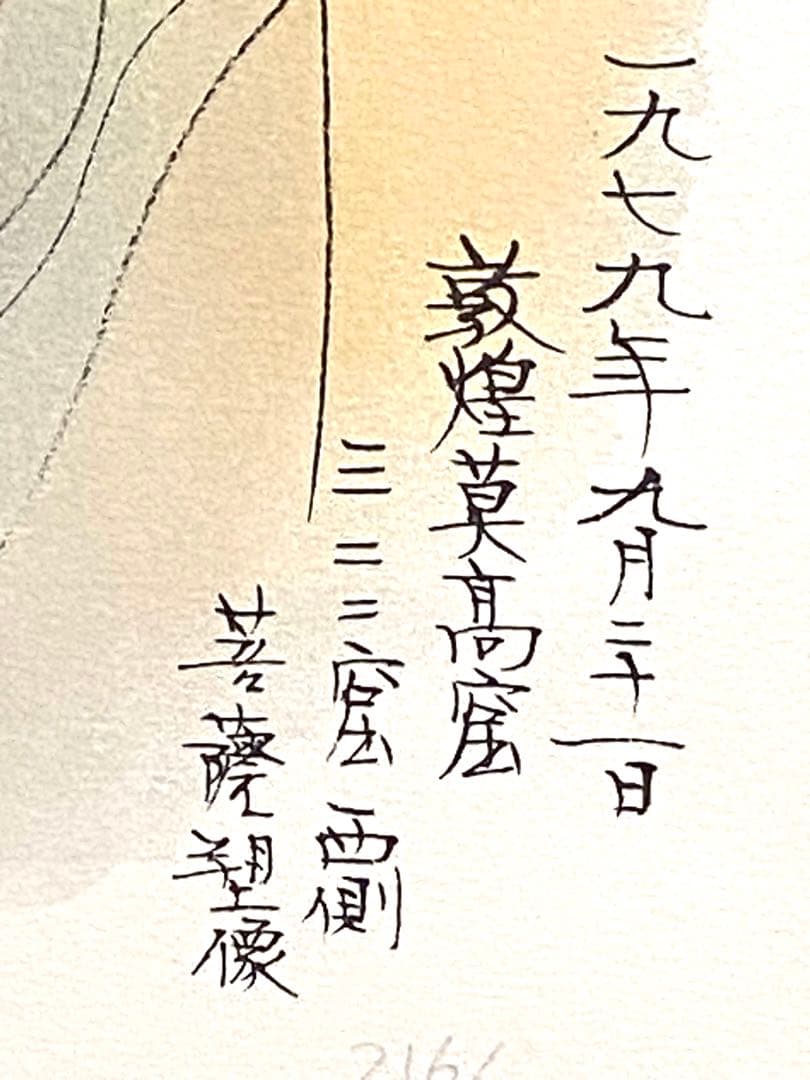 一九七九年九月二十一日
敦煌莫高窟
三二二窟 西側
菩薩塑像